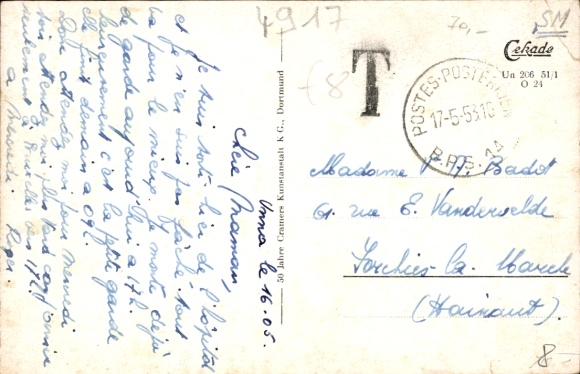 4917
70,-
SM
Cekade
Un 206 51/1
O 24
T
POSTES-POSTERIJEN
17-5-53 10
B.P.S. 14
Unna le 16.05.
Chère Maman,
Je suis sorti hier de l'hôpital
et je n'en suis pas fâché. Tout
va pour le mieux. Je monte déjà
de garde aujourd'hui à 17 h.
heureusement c'est la petite garde
et finit demain à 09 h.
Donc attendez moi pour mercredi
soir. Attendez moi plus tard car j'arrive
seulement à Bruxelles vers 17 h 20
à mercredi
Roger.
50 Jahre Cramers Kunstanstalt KG., Dortmund
Madame P. Badot
61. rue E. Vandervelde
Forchies-la-Marche
(Hainaut).
8-